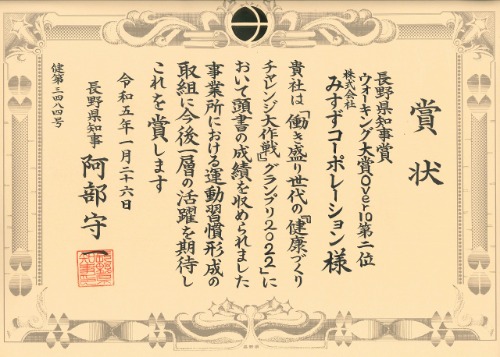 賞状
長野県知事賞
ウォーキング大賞Over10第二位
株式会社
みすずコーポレーション様
貴社は「働き盛り世代の『健康づくり
チャレンジ大作戦』グランプリ2022」に
おいて頭書の成績を収められました
事業所における運動習慣形成の
取組に今後一層の活躍を期待し
これを賞します
令和五年一月二十六日
長野県知事 阿部守一
健第三四八四号